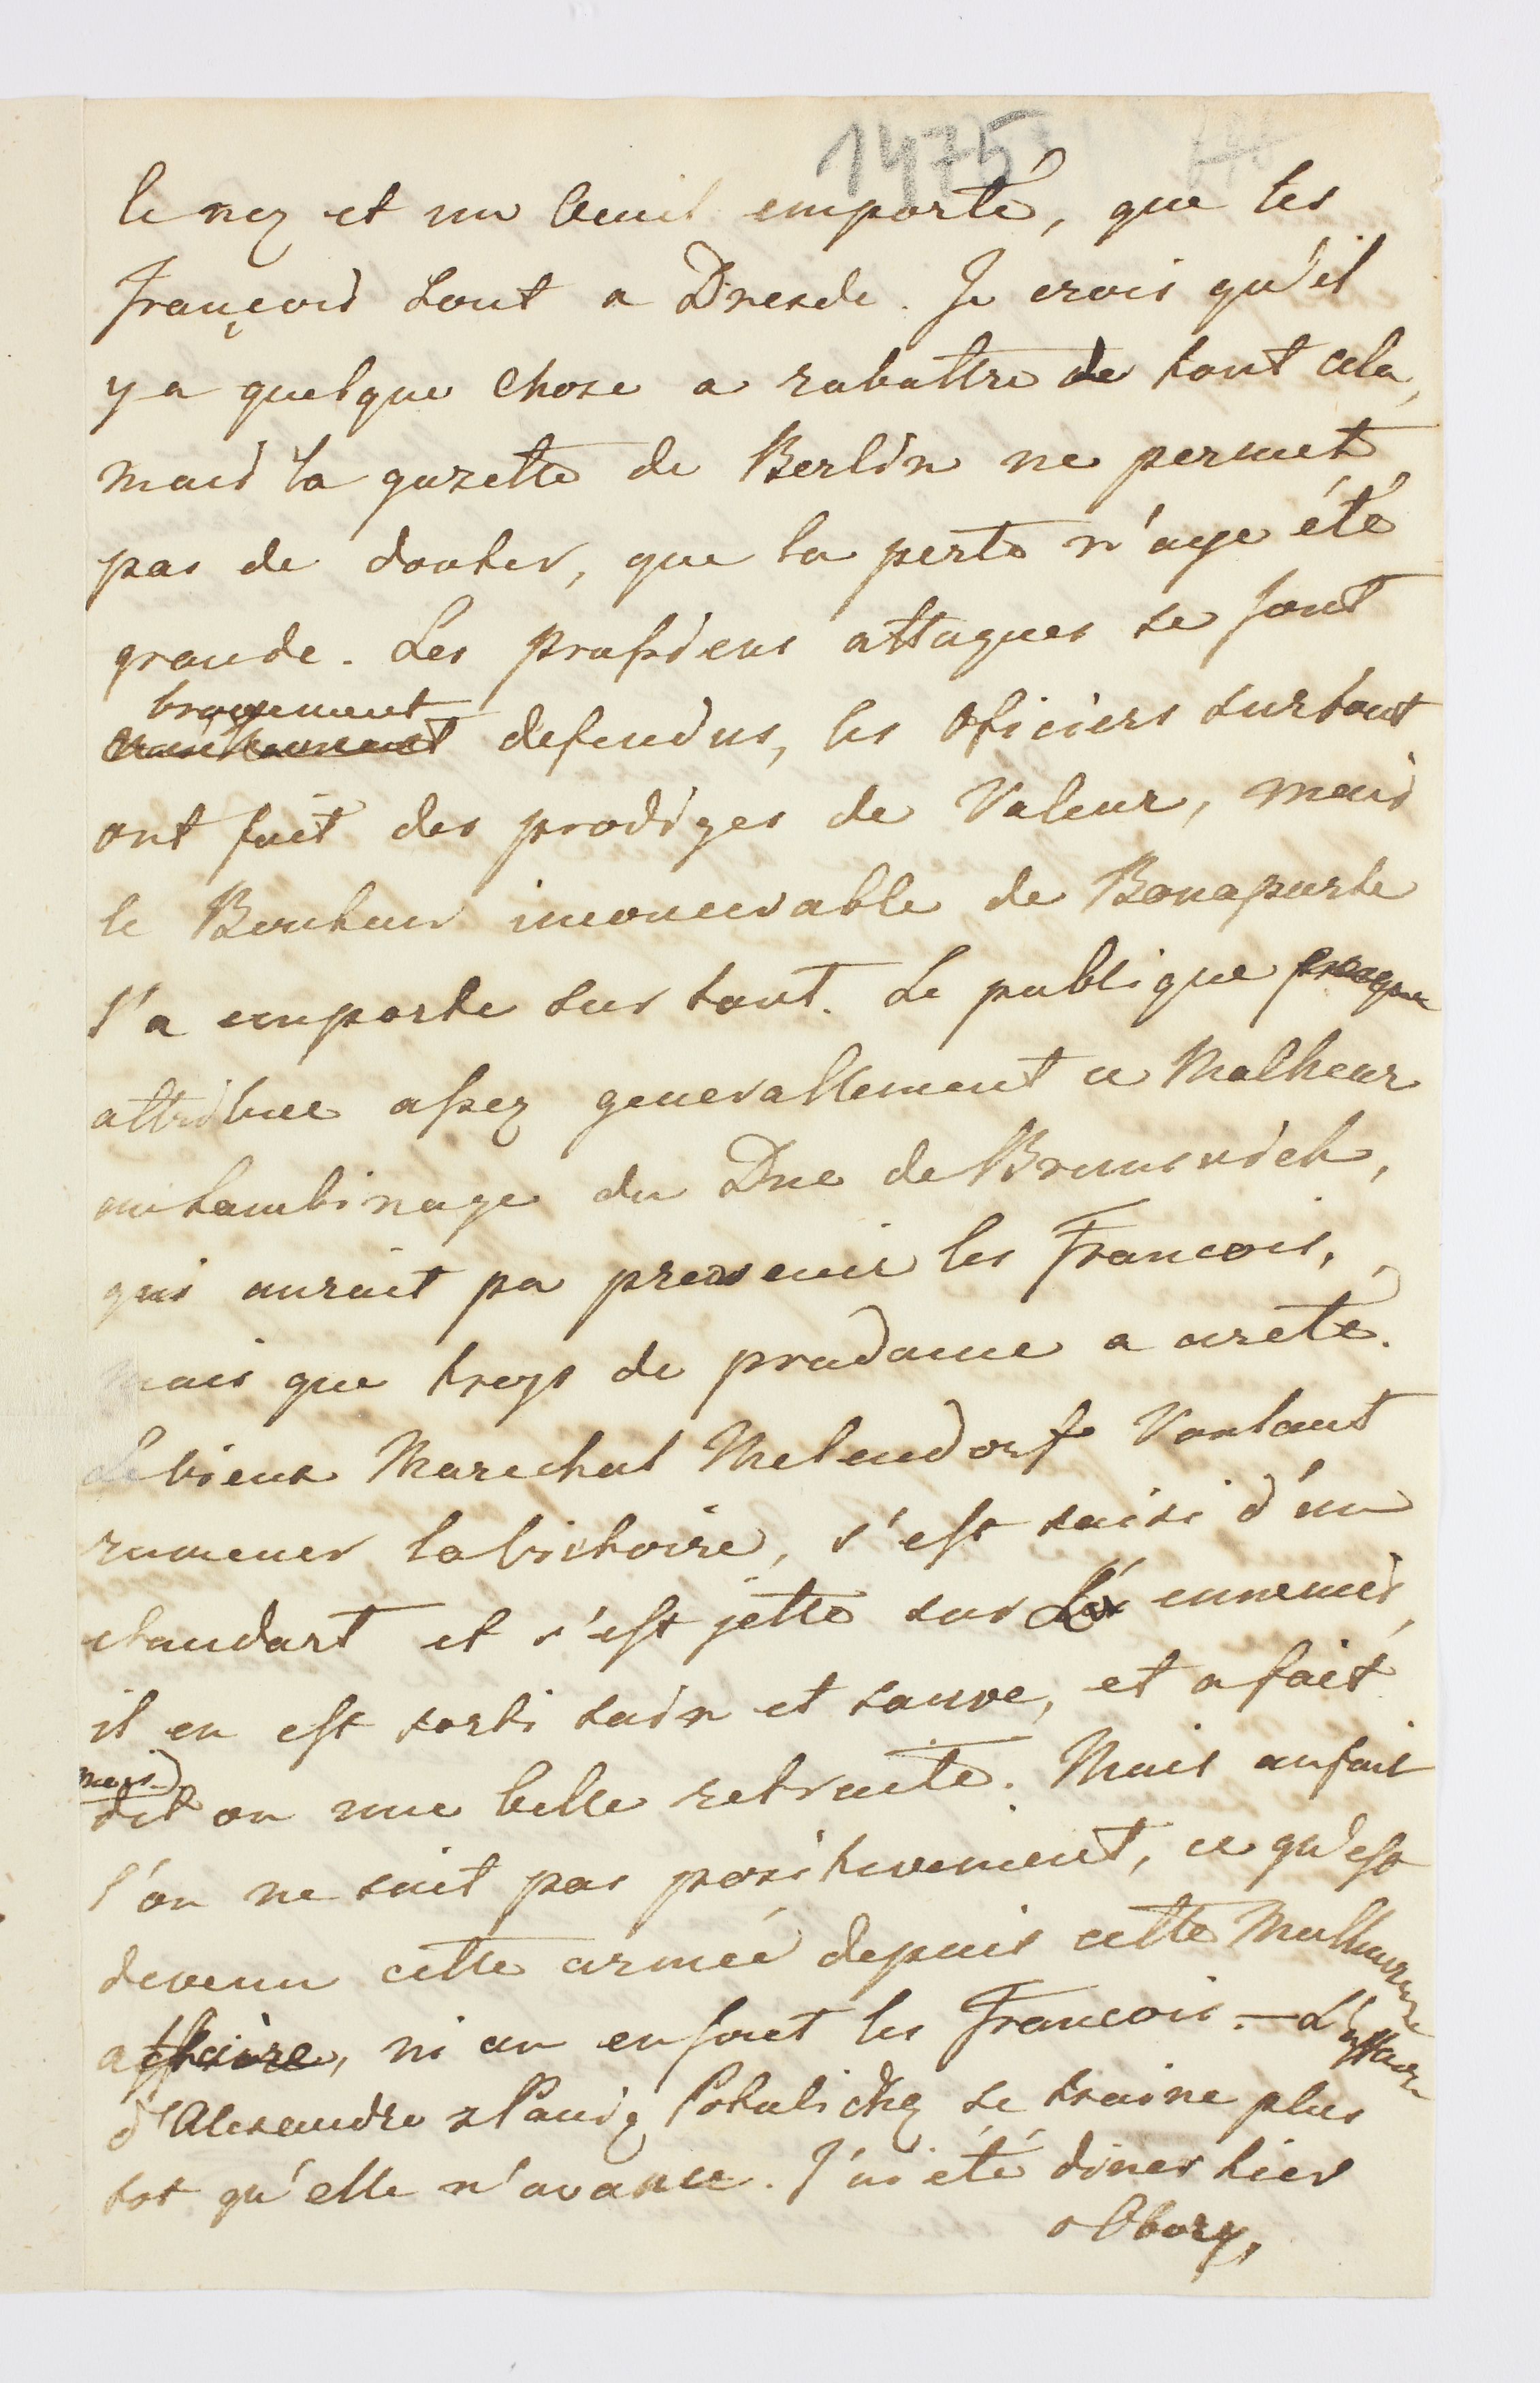 1475
le nez et un oeuil emporté, que les
françois sont a Dresde. Je crois qu'il
y a quelque chose a rabattre de tout cela,
mais la gazette de Berlin ne permet
pas de douter, que la perte n'aye été
grande. Les prussiens attaques se sont
bravement
defendus, les oficiers surtout
ont fait des prodiges de Valeur, mais
le Bonheur inconcevable de Bonaparte
l'a emporte sur tout. Le publique presque
attribue assez generallement ce Malheur
au lambinage du Duc de Brunsvick,
qui aurait pu prevenir les Francois,
mais que trop de prudance a areté.
Le vieux Marechal Melendorf Voulant
ramener la victoire, s'est saisi d'un
etandart et s'est jetté sur les ennemis,
il en est sorti sain et sauve, et a fait
mais
dit on une belle retraite. Mais aufait
l'on ne sait pas positivement, ce qu'est
devenu cette armée depuis cette Malheureuse
affaire, ni au en sont les Francois. — L'affaire
d'Alexandre et Potulicky se traine plus
tot qu'elle n'avance. J'ai été diner hier
a Obory,